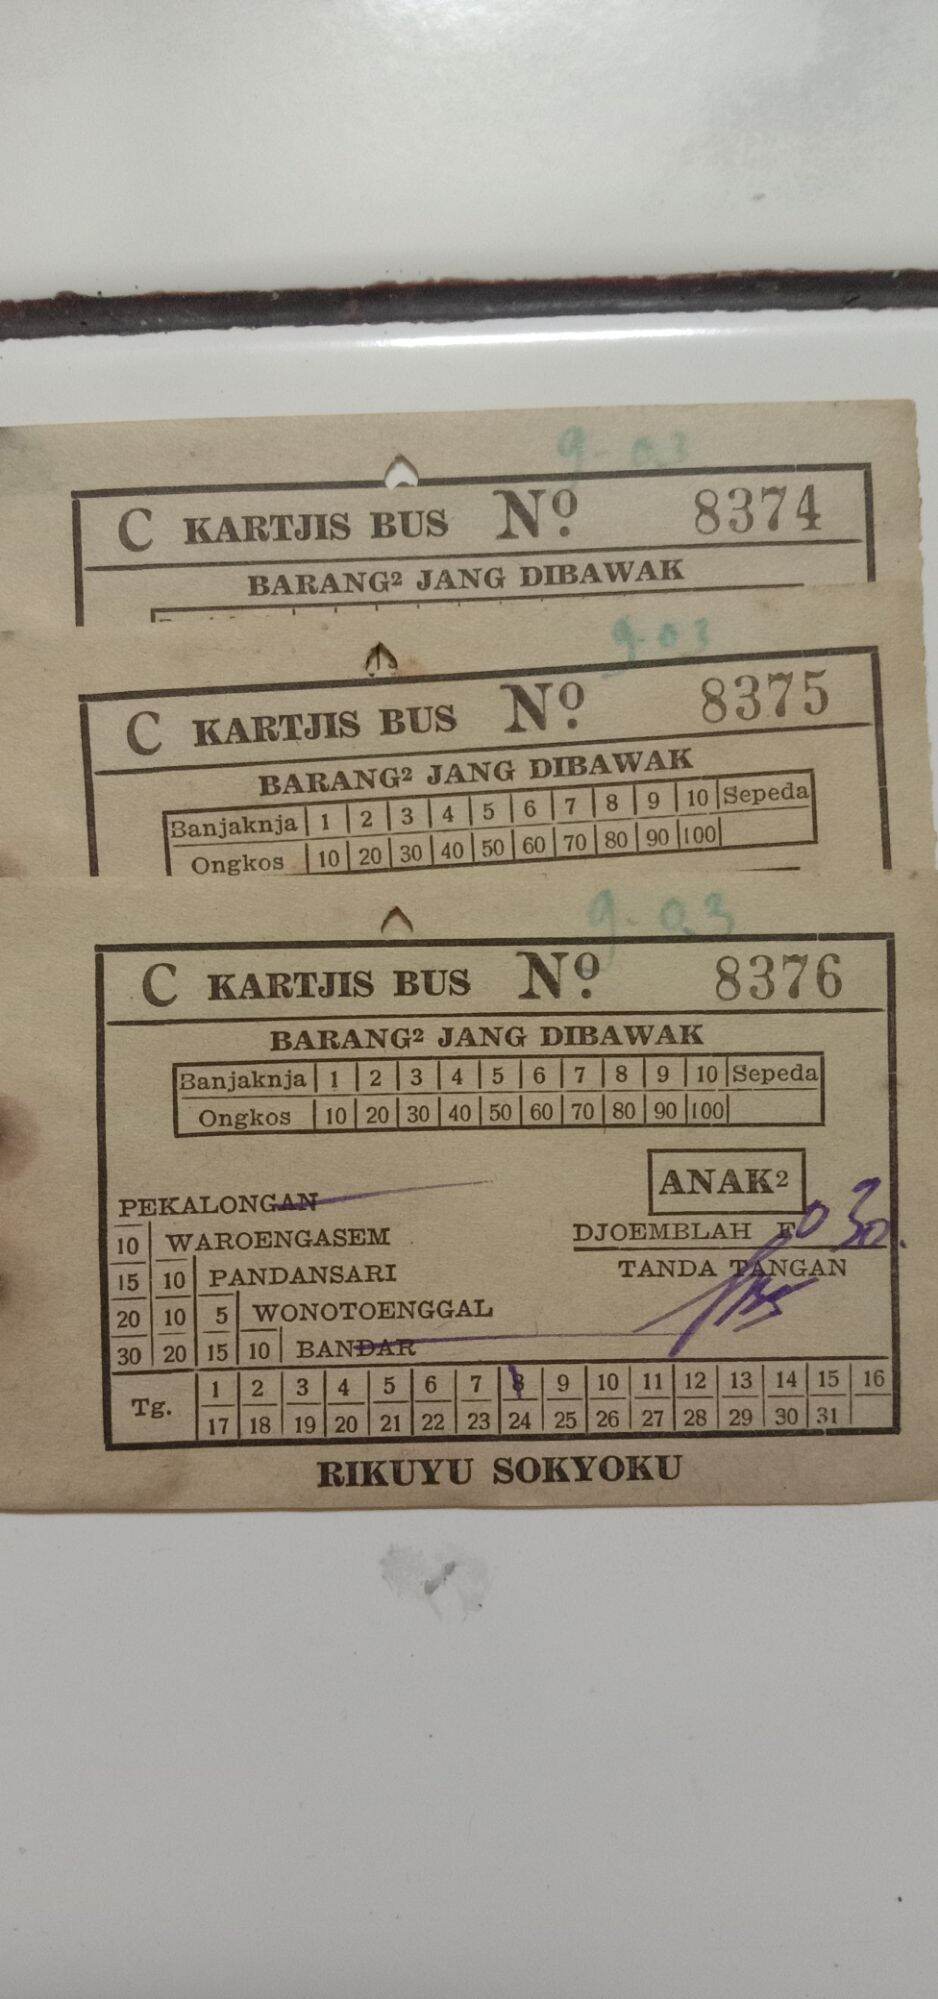 9-03
C KARTJIS BUS Nº 8374
BARANG² JANG DIBAWAK
9-03
C KARTJIS BUS Nº 8375
BARANG² JANG DIBAWAK
Banjaknja 1 2 3 4 5 6 7 8 9 10 Sepeda
Ongkos 10 20 30 40 50 60 70 80 90 100
9-03
C KARTJIS BUS Nº 8376
BARANG² JANG DIBAWAK
Banjaknja 1 2 3 4 5 6 7 8 9 10 Sepeda
Ongkos 10 20 30 40 50 60 70 80 90 100
ANAK²
PEKALONGAN
DJOEMBLAH F 0 30.
10 WAROENGASEM
TANDA TANGAN
15 10 PANDANSARI
20 10 5 WONOTOENGGAL
30 20 15 10 BANDAR
Tg. 1 2 3 4 5 6 7 8 9 10 11 12 13 14 15 16
17 18 19 20 21 22 23 24 25 26 27 28 29 30 31
RIKUYU SOKYOKU